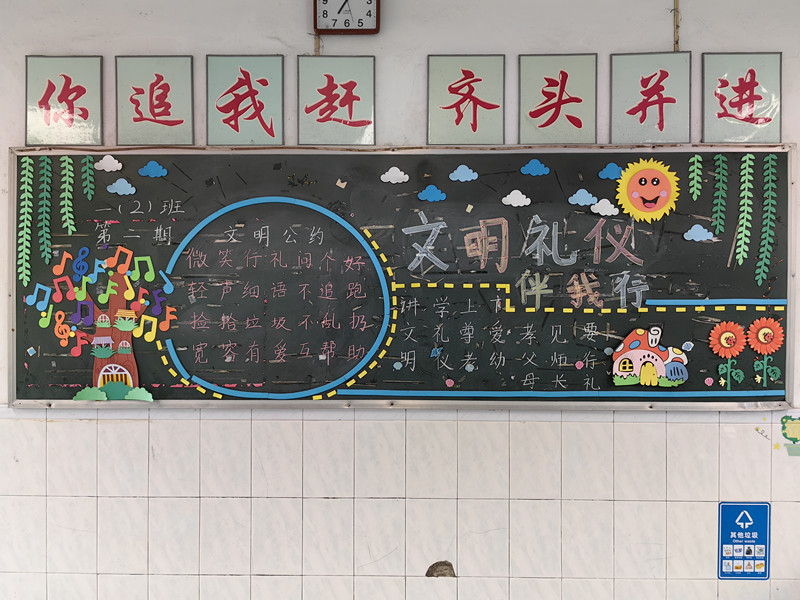 你追我赶 齐头并进
一(2)班
第二期
文明公约
微笑行礼问个好
轻声细语不追跑
捡拾垃圾不乱扔
宽容有爱互帮助
文明礼仪
伴我行
讲文明
学礼仪
上尊老
爱幼
孝父母
见师长
要行礼
其他垃圾
Other waste